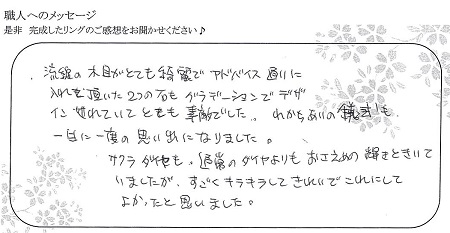 職人へのメッセージ
是非 完成したリングのご感想をお聞かせください♪
流線の木目がとても綺麗でアドバイス通りに
入れて頂いた2つの石もグラデーションでデザ
イン されていて とても素敵でした。わかちあいの儀式も
一生に一度の思い出になりました。
サクラダイヤも、通常のダイヤよりもおさえめの輝きときいて
いましたが、すごくキラキラしてきれいでこれにして
よかったと思いました。